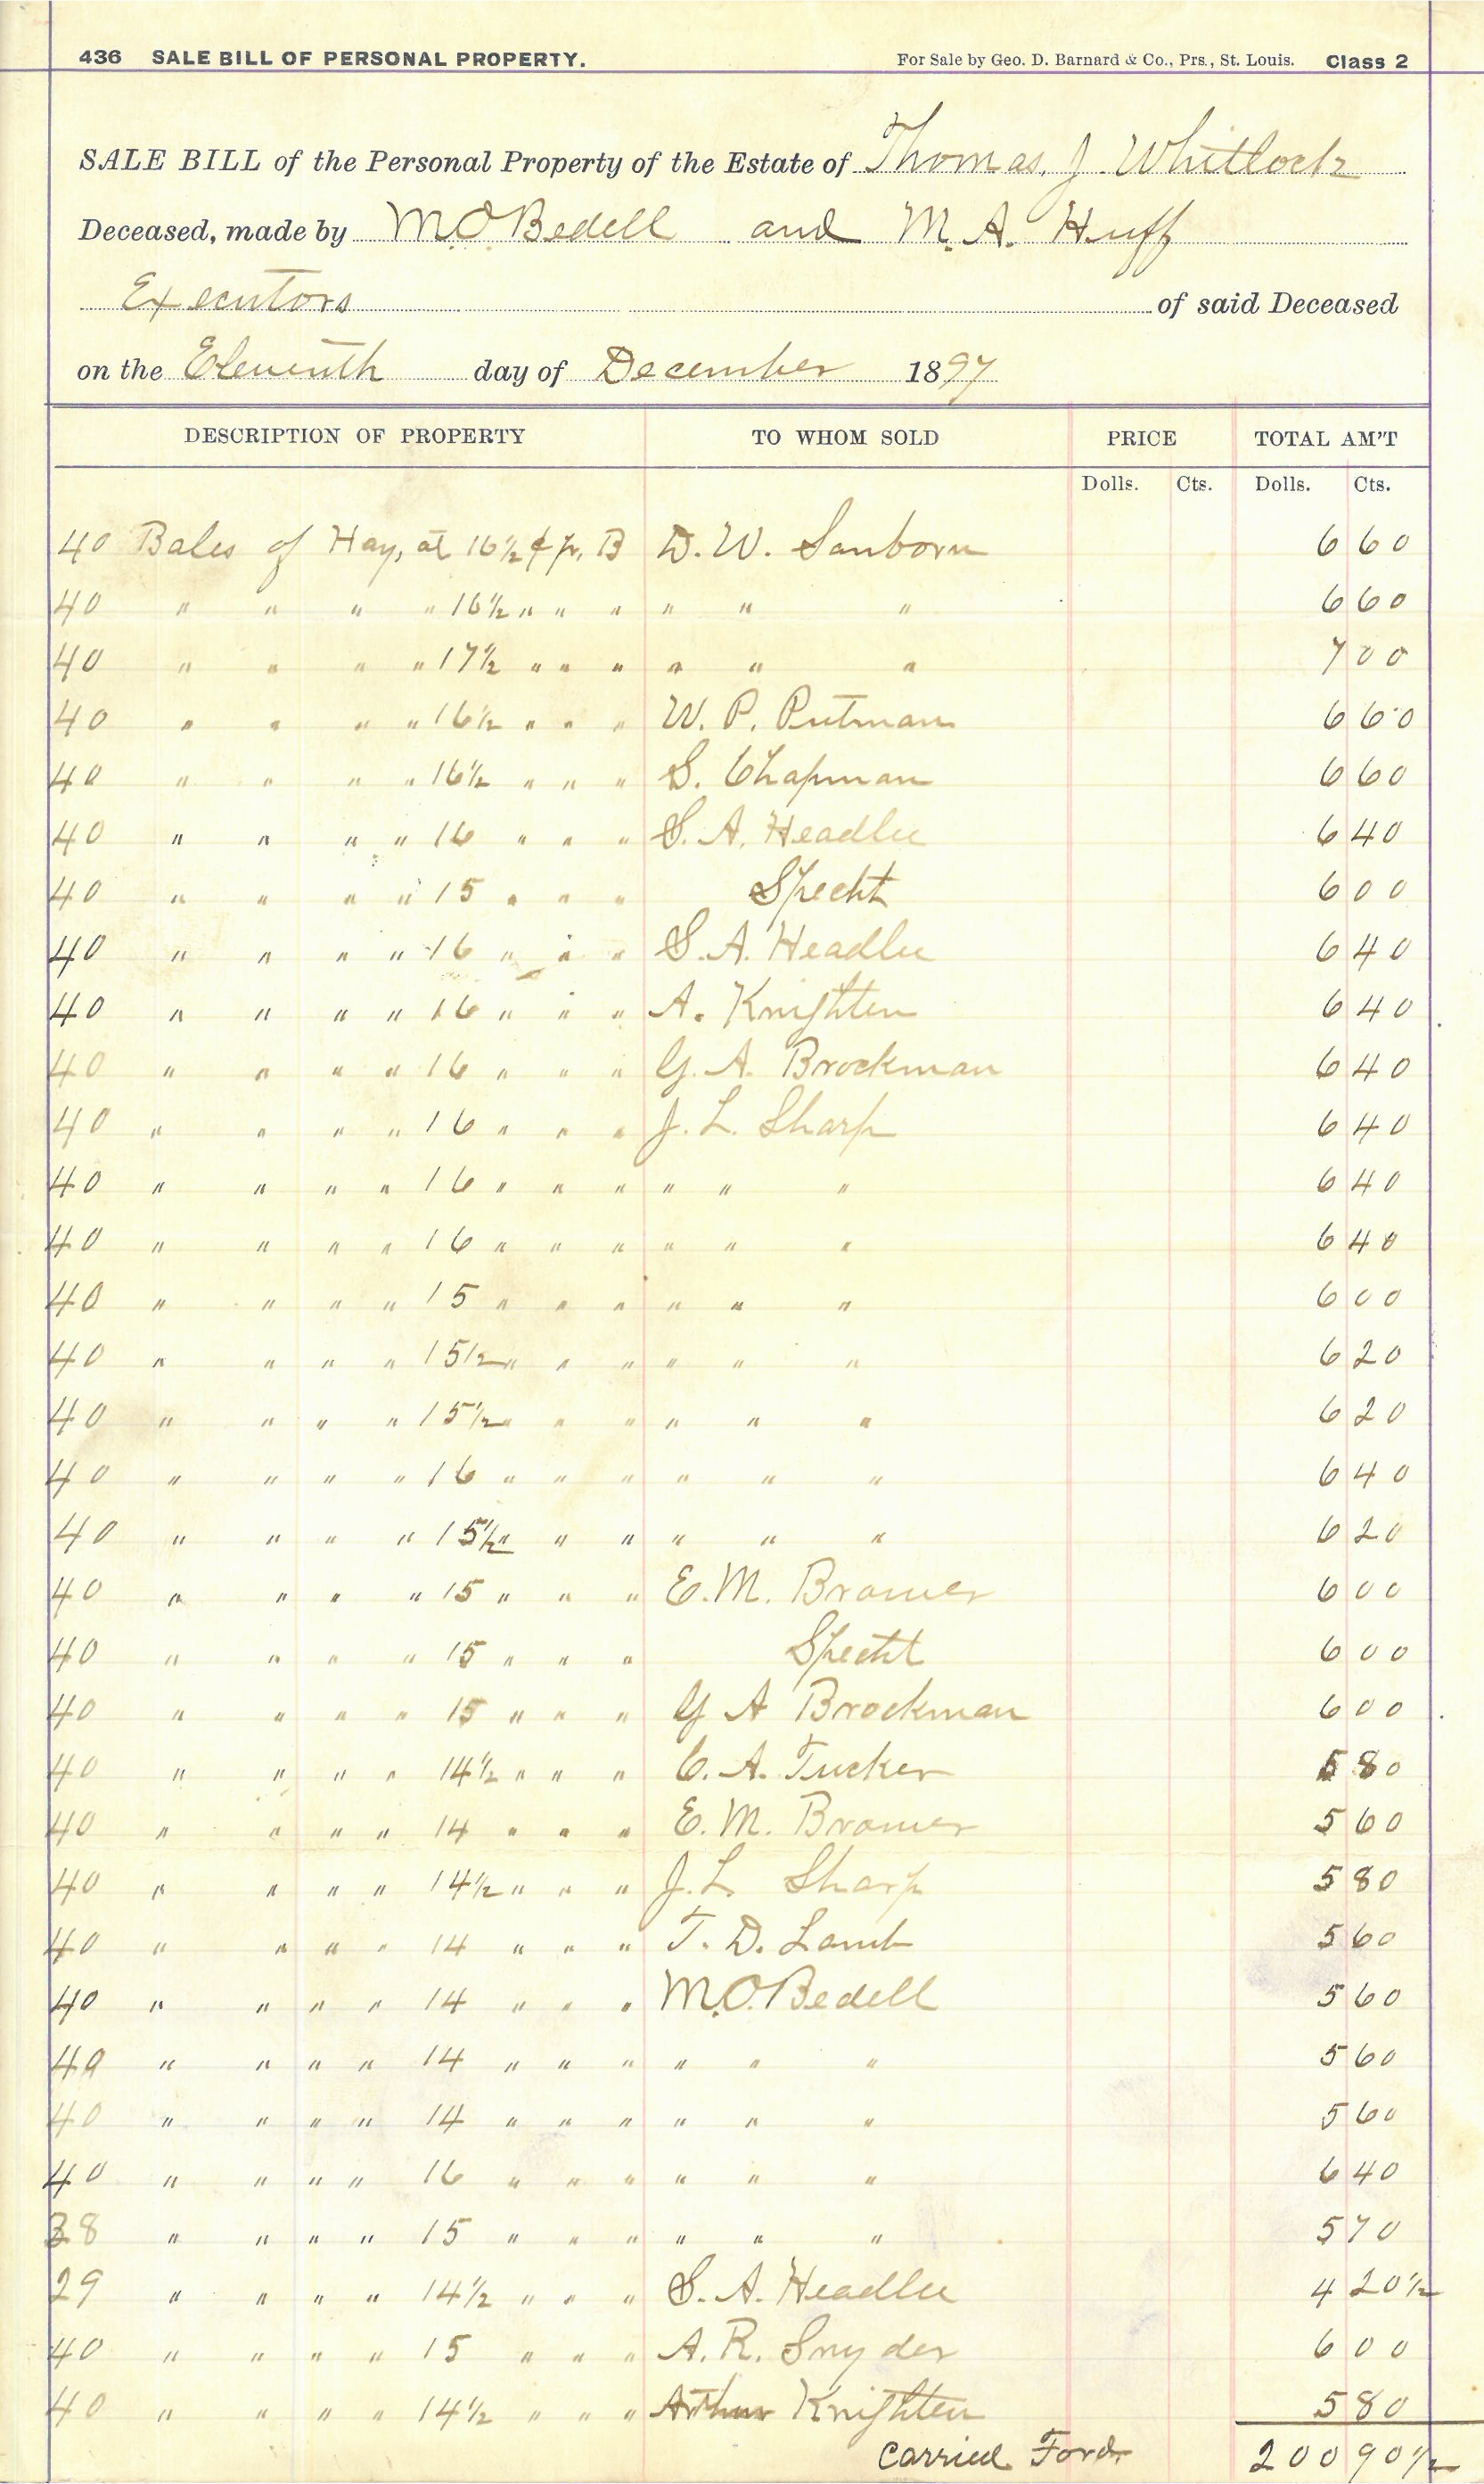 436 SALE BILL OF PERSONAL PROPERTY. For Sale by Geo. D. Barnard & Co., Prs., St. Louis. Class 2
SALE BILL of the Personal Property of the Estate of Thomas. J. Whitlock
Deceased, made by M.O. Bedell and M. A. Huff
Executors of said Deceased
on the Eleventh day of December 1897
DESCRIPTION OF PROPERTY TO WHOM SOLD PRICE TOTAL AM'T
Dolls. Cts. Dolls. Cts.
40 Bales of Hay, at 16½ ¢ pr. B D. W. Sanborn 6 60
40 " " " " 16½ " " " " " " 6 60
40 " " " " 17½ " " " " " " 7 00
40 " " " " 16½ " " " W. P. Putman 6 60
40 " " " " 16½ " " " S. Chapman 6 60
40 " " " " 16 " " " S. A. Headlee 6 40
40 " " " " 15 " " " Specht 6 00
40 " " " " 16 " " " S. A. Headlee 6 40
40 " " " " 16 " " " A. Knighten 6 40
40 " " " " 16 " " " G. A. Brockman 6 40
40 " " " " 16 " " " J. L. Sharp 6 40
40 " " " " 16 " " " " " " 6 40
40 " " " " 16 " " " " " " 6 40
40 " " " " 15 " " " " " " 6 00
40 " " " " 15½ " " " " " " 6 20
40 " " " " 15½ " " " " " " 6 20
40 " " " " 16 " " " " " " 6 40
40 " " " " 15½ " " " " " " 6 20
40 " " " " 15 " " " E. M. Bramer 6 00
40 " " " " 15 " " " Specht 6 00
40 " " " " 15 " " " G A Brockman 6 00
40 " " " " 14½ " " " C. A. Tucker 5 80
40 " " " " 14 " " " E. M. Bramer 5 60
40 " " " " 14½ " " " J. L. Sharp 5 80
40 " " " " 14 " " " T. D. Lamb 5 60
40 " " " " 14 " " " M.O. Bedell 5 60
40 " " " " 14 " " " " " " 5 60
40 " " " " 14 " " " " " " 5 60
40 " " " " 16 " " " " " " 6 40
38 " " " " 15 " " " " " " 5 70
29 " " " " 14½ " " " S. A. Headlee 4 20½
40 " " " " 15 " " " A. R. Snyder 6 00
40 " " " " 14½ " " " Arthur Knighten 5 80
Carried Ford. 200 90½